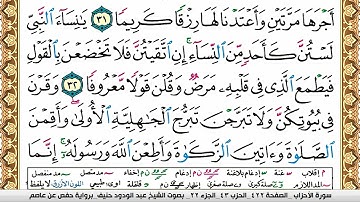 أَجْرَهَا مَرَّتَيْنِ وَأَعْتَدْنَا لَهَا رِزْقًا كَرِيمًا ٣١ يَٰنِسَآءَ ٱلنَّبِىِّ
لَسْتُنَّ كَأَحَدٍ مِّنَ ٱلنِّسَآءِ إِنِ ٱتَّقَيْتُنَّ فَلَا تَخْضَعْنَ بِٱلْقَوْلِ
فَيَطْمَعَ ٱلَّذِى فِى قَلْبِهِۦ مَرَضٌ وَقُلْنَ قَوْلًا مَّعْرُوفًا ٣٢ وَقَرْنَ
فِى بُيُوتِكُنَّ وَلَا تَبَرَّجْنَ تَبَرُّجَ ٱلْجَٰهِلِيَّةِ ٱلْأُولَىٰ وَأَقِمْنَ
ٱلصَّلَوٰةَ وَءَاتِينَ ٱلزَّكَوٰةَ وَأَطِعْنَ ٱللَّهَ وَرَسُولَهُۥٓ إِنَّمَا
سورة الأحزاب الصفحة ٤٢٢ الحزب ٤٣ الجزء ٢٢ بصوت الشيخ عبد الودود حنيف برواية حفص عن عاصم